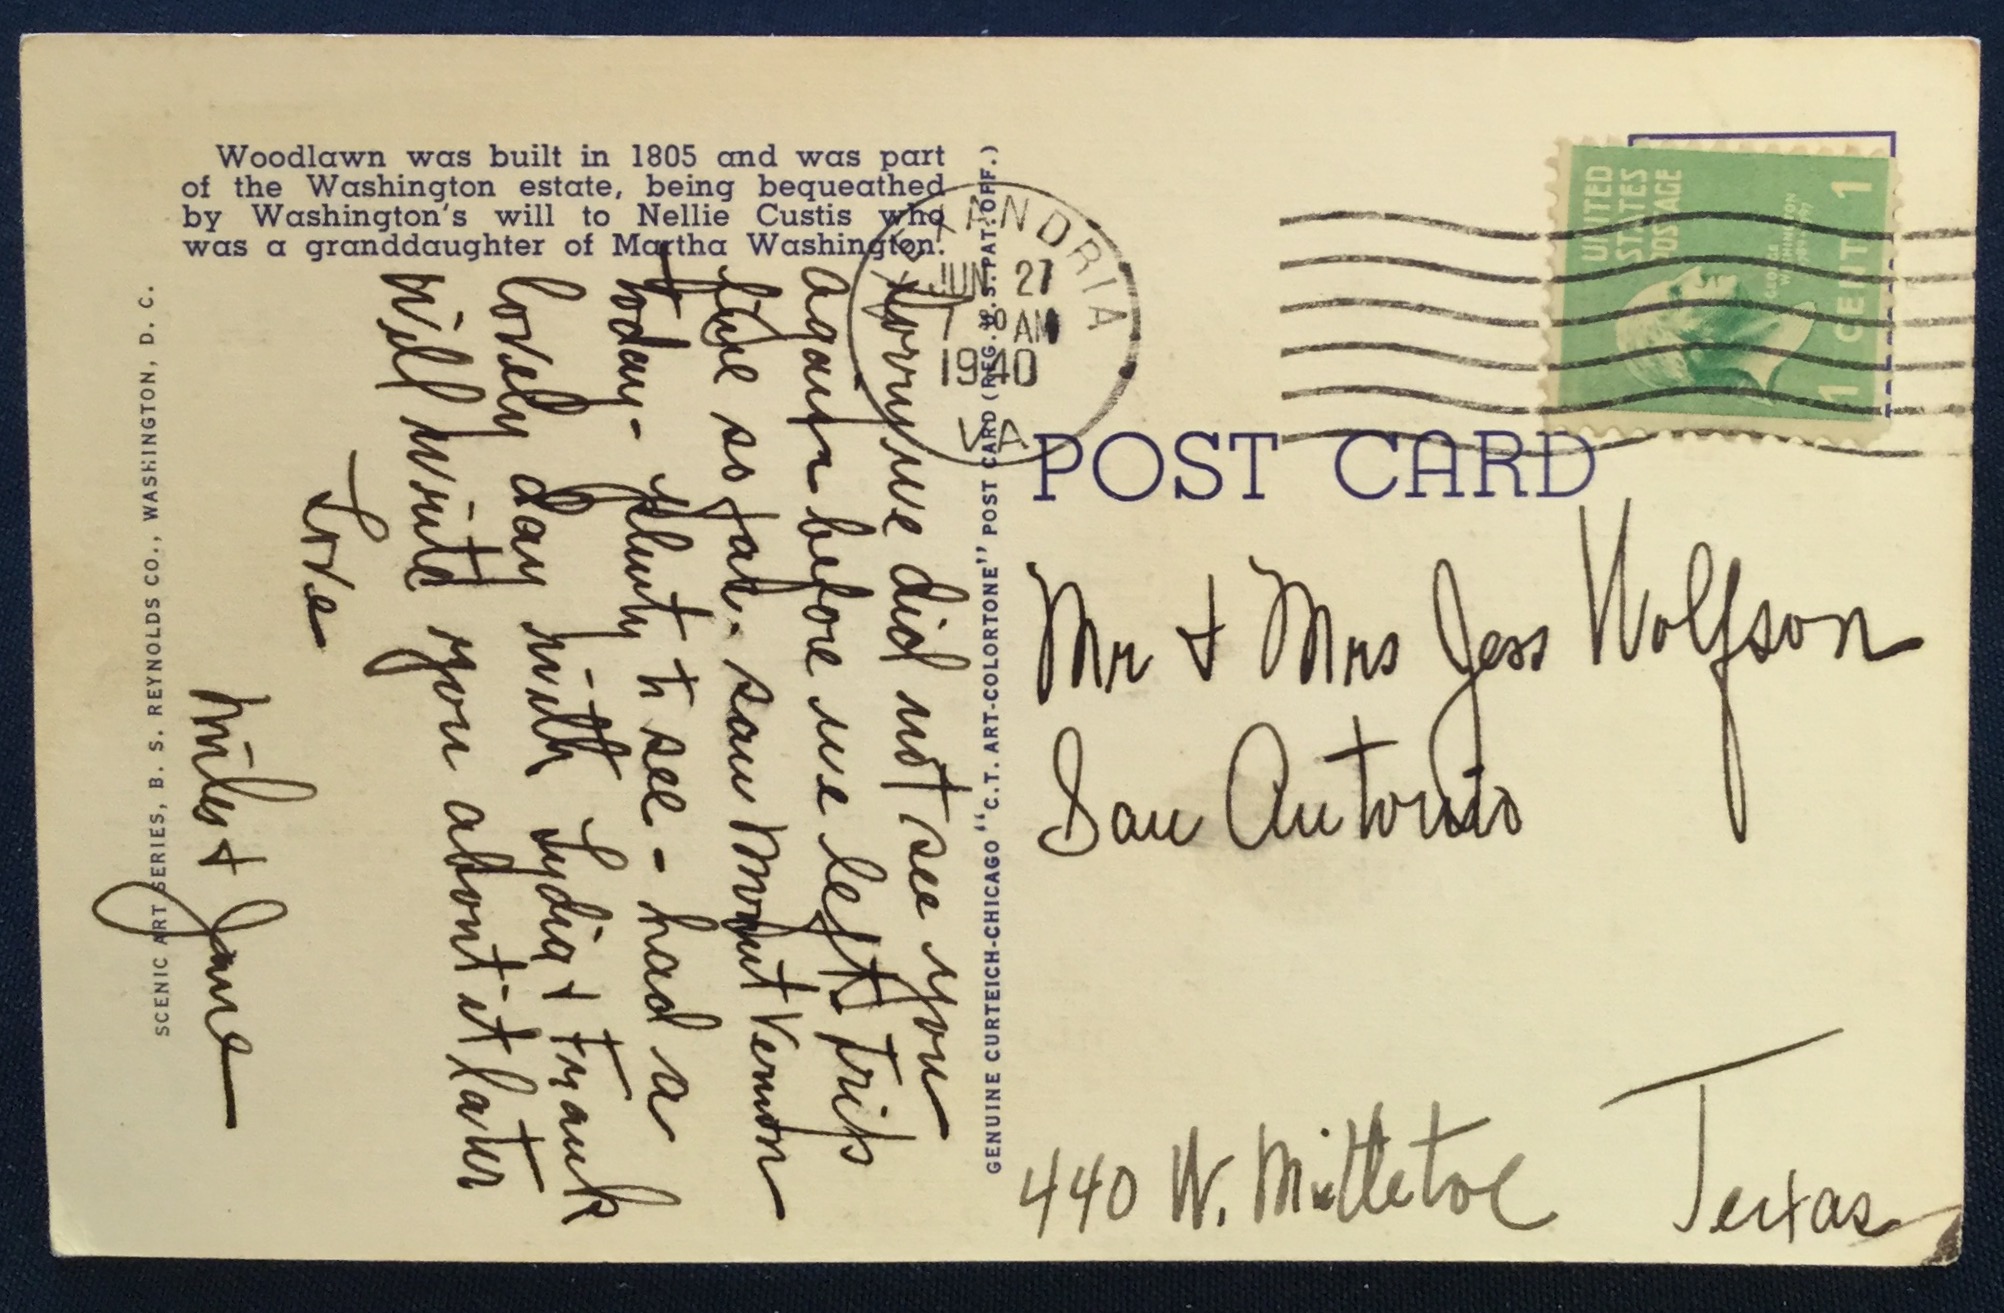 Woodlawn was built in 1805 and was part
of the Washington estate, being bequeathed
by Washington's will to Nellie Custis who
was a granddaughter of Martha Washington.
Sorry we did not see you
again before we left trip
fine so far. saw Mount Vernon
today - plenty to see - had a
lovely day with Lydia + Frank
will write you about it later
Love
Miles + Jane
SCENIC ART SERIES, B. S. REYNOLDS CO., WASHINGTON, D. C.
GENUINE CURTEICH-CHICAGO "C.T. ART-COLORTONE" POST CARD (REG. U.S. PAT. OFF.)
ALEXANDRIA
JUN 27
7 30 AM
1940
VA
UNITED
STATES
POSTAGE
GEORGE
WASHINGTON
1789-1797
1 CENT 1
POST CARD
Mr + Mrs Jess Wolfson
San Antonio
Texas
440 W. Mistletoe